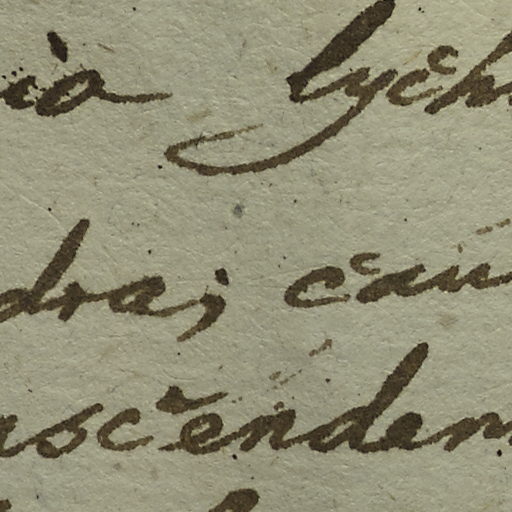 io lych
dra; cau
ascenden